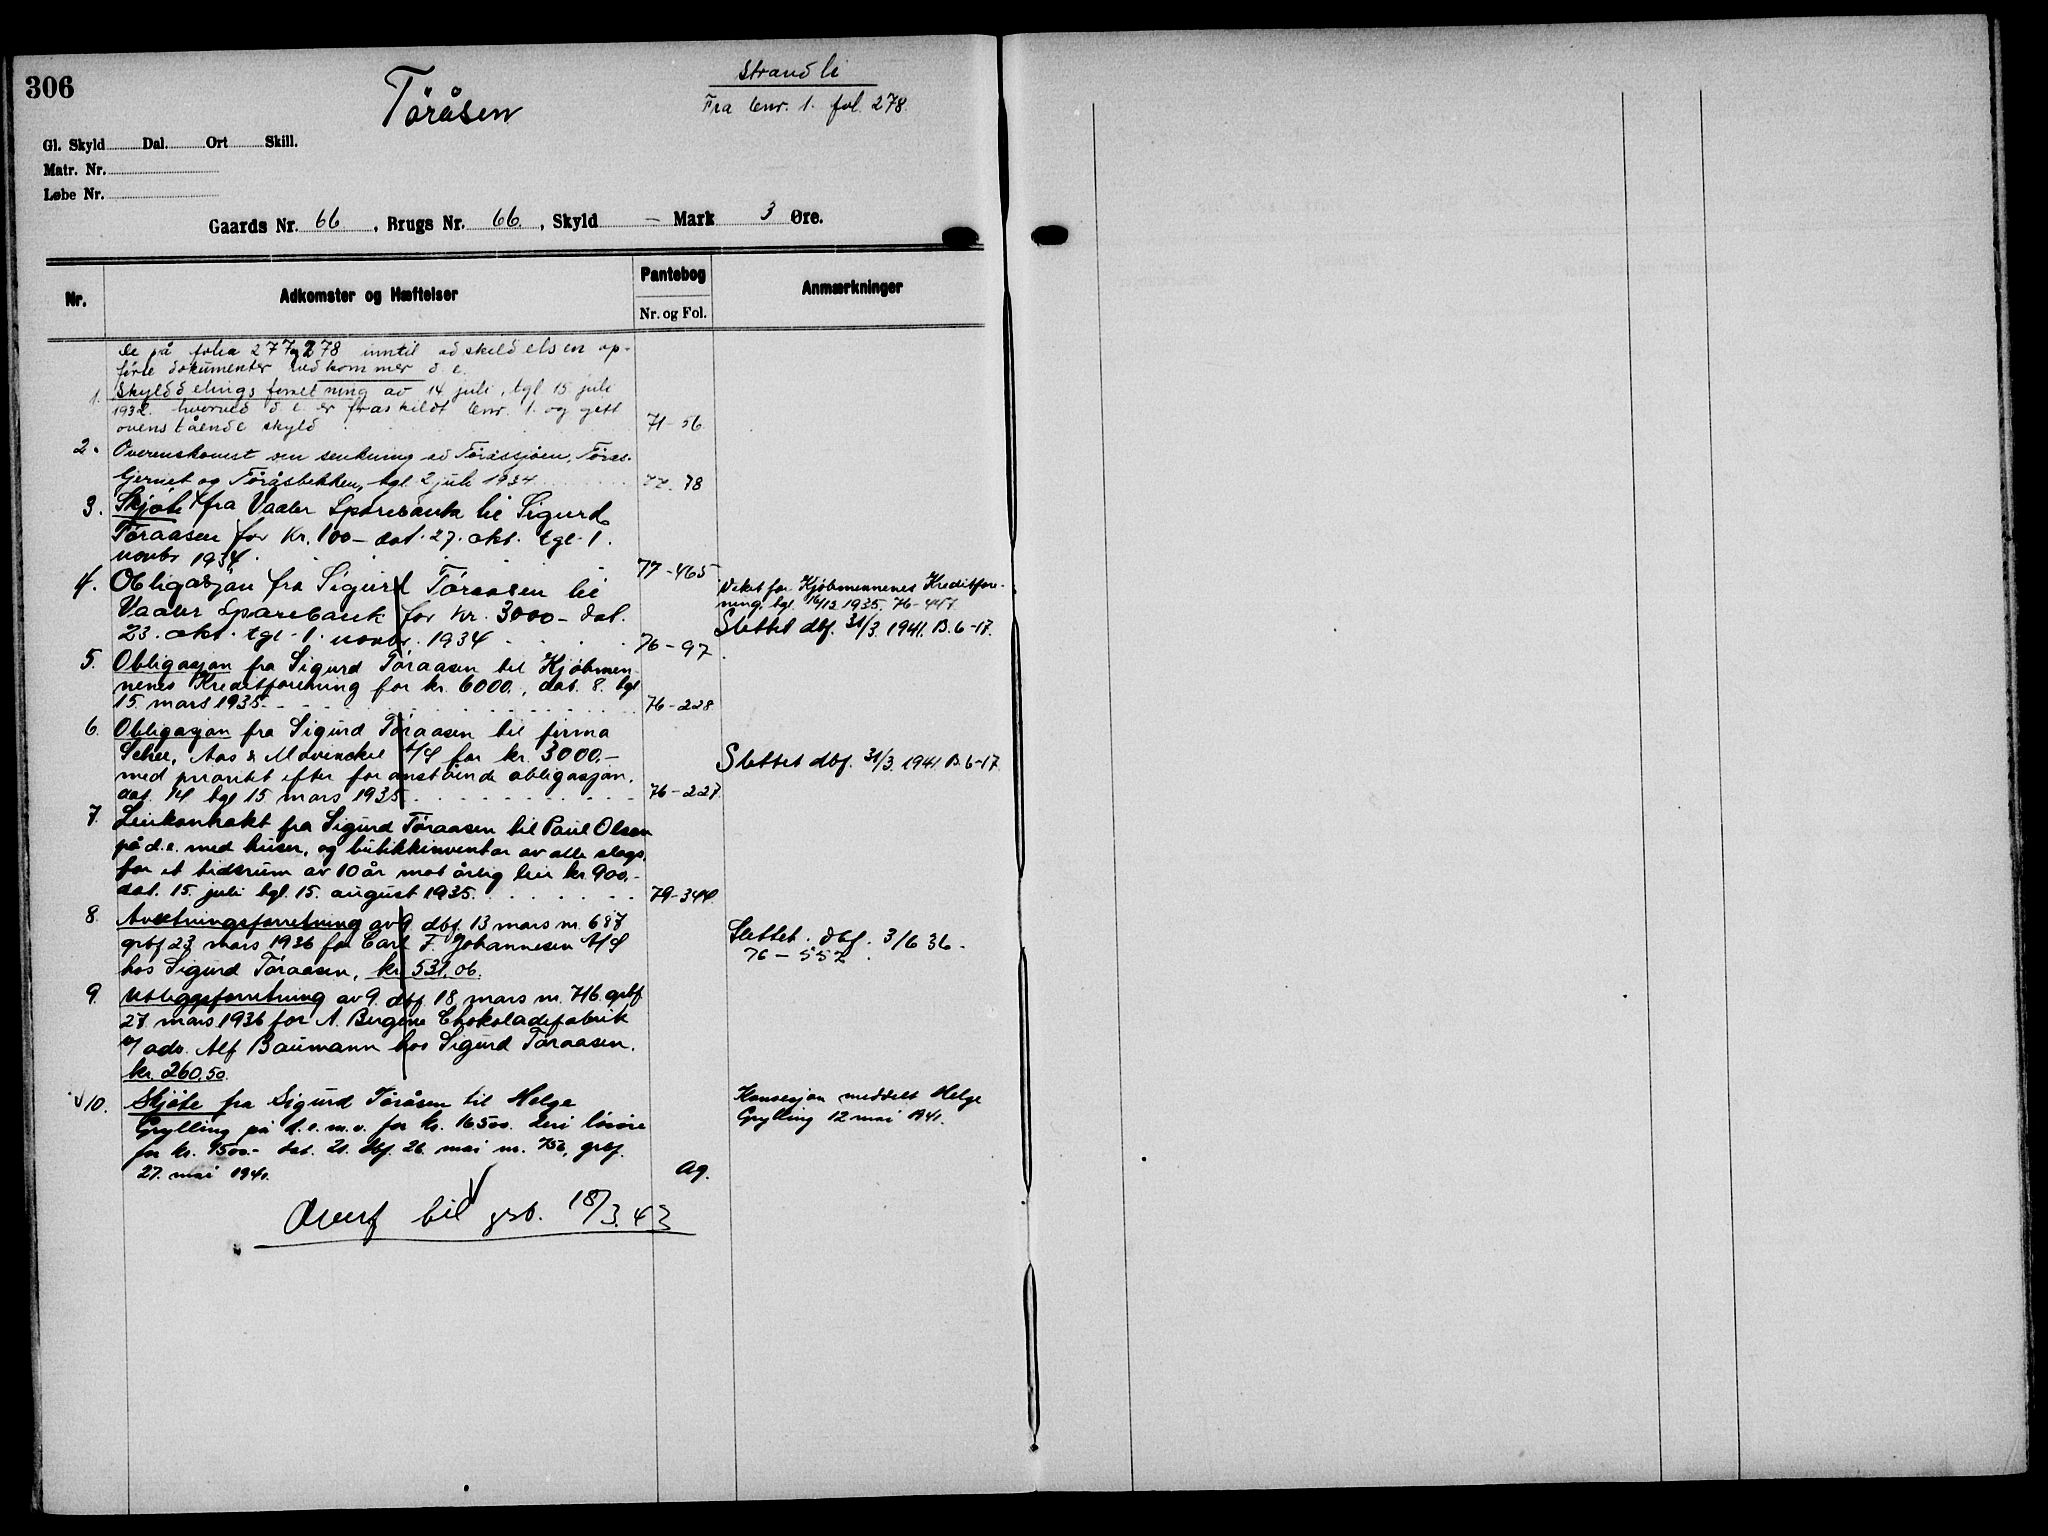 306
Töråsen
Strandli
Fra bnr. 1. fol. 278.
Gl. Skyld Dal. Ort Skill.
Matr. Nr.
Løbe Nr.
Gaards Nr. 66, Brugs Nr. 66, Skyld — Mark 3 Øre.
Nr.
Adkomster og Hæftelser
Pantebog
Nr. og Fol.
Anmærkninger
De på folia 277 og 278 inntil adskildelsen op-
førte dokumenter vedkommer d. e.
1. Skylddelingsforretning av 14 juli, tgl 15 juli
1932. hvorved d. e. er fraskildt bnr. 1. og gitt
ovenstående skyld 71-56
2. Overenskomst om senkning av Töråssjøen, Törås-
tjernet og Töråsbekken, tgl 2 juli 1934 77-78
3. Skjöte fra Vaaler Sparebank til Sigurd
Töraasen for Kr. 100 – dat. 27. okt. tgl. 1.
novbr 1934. 77-465
4. Obligasjon fra Sigurd Töraasen til
Vaaler Sparebank for Kr. 3000 – dat.
23. okt. tgl. 1. novbr. 1934 76-97
Veket for Kjøbmennenes Kreditfore-
ning, tgl. 16/12 1935, 76-447
Slettet dbf. 31/3. 1941. B. 6-17.
5. Obligasjon fra Sigurd Töraasen til Kjøbmen-
nenes Kreditforening for kr. 6000., dat. 8. tgl
15. mars 1935. 76-228
6. Obligasjon fra Sigurd Töraasen til firma
Schee, Aas & Movinckel A/S for kr. 3000.–
med prioritet efter foranstående obligasjon.
dat. 14 tgl 15 mars 1935 76-227
Slettet dbf. 31/3. 1941. B. 6-17.
7. Leiekontrakt fra Sigurd Töraasen til Paul Olsen
på d. e. med huser, og butikkinventar av alle slags,
for et tidsrum av 10 år mot årlig leie kr. 900.–
dat. 15. juli tgl. 15. august 1935. 79-344
8. Avsetningsforretning av 9. dbf. 13 mars nr. 687
grbf 23 mars 1936 for Carl F. Johannesen A/S
hos Sigurd Töraasen, kr. 531,06.
Slettet. dbf. 3/6 36.
76-552.
9. Utleggsforretning av 9. dbf. 18. mars nr. 716. grbf
27. mars 1936 for A. Bergene Chokoladefabrik
v/ adv. Alf Baumann hos Sigurd Töraasen.
kr. 260,50.
10. Skjöte fra Sigurd Töråsen til Helge
Grylling på d. e. m. v. for kr. 16500. Leri lösöre
for kr. 1500.- dat. 21. dbf. 26. mai nr. 756, grbf.
27. mai 1941. Ag.
Konsesjon meddelt Helge
Grylling 12 mai 1941.
Overf til grb. 18/3.43